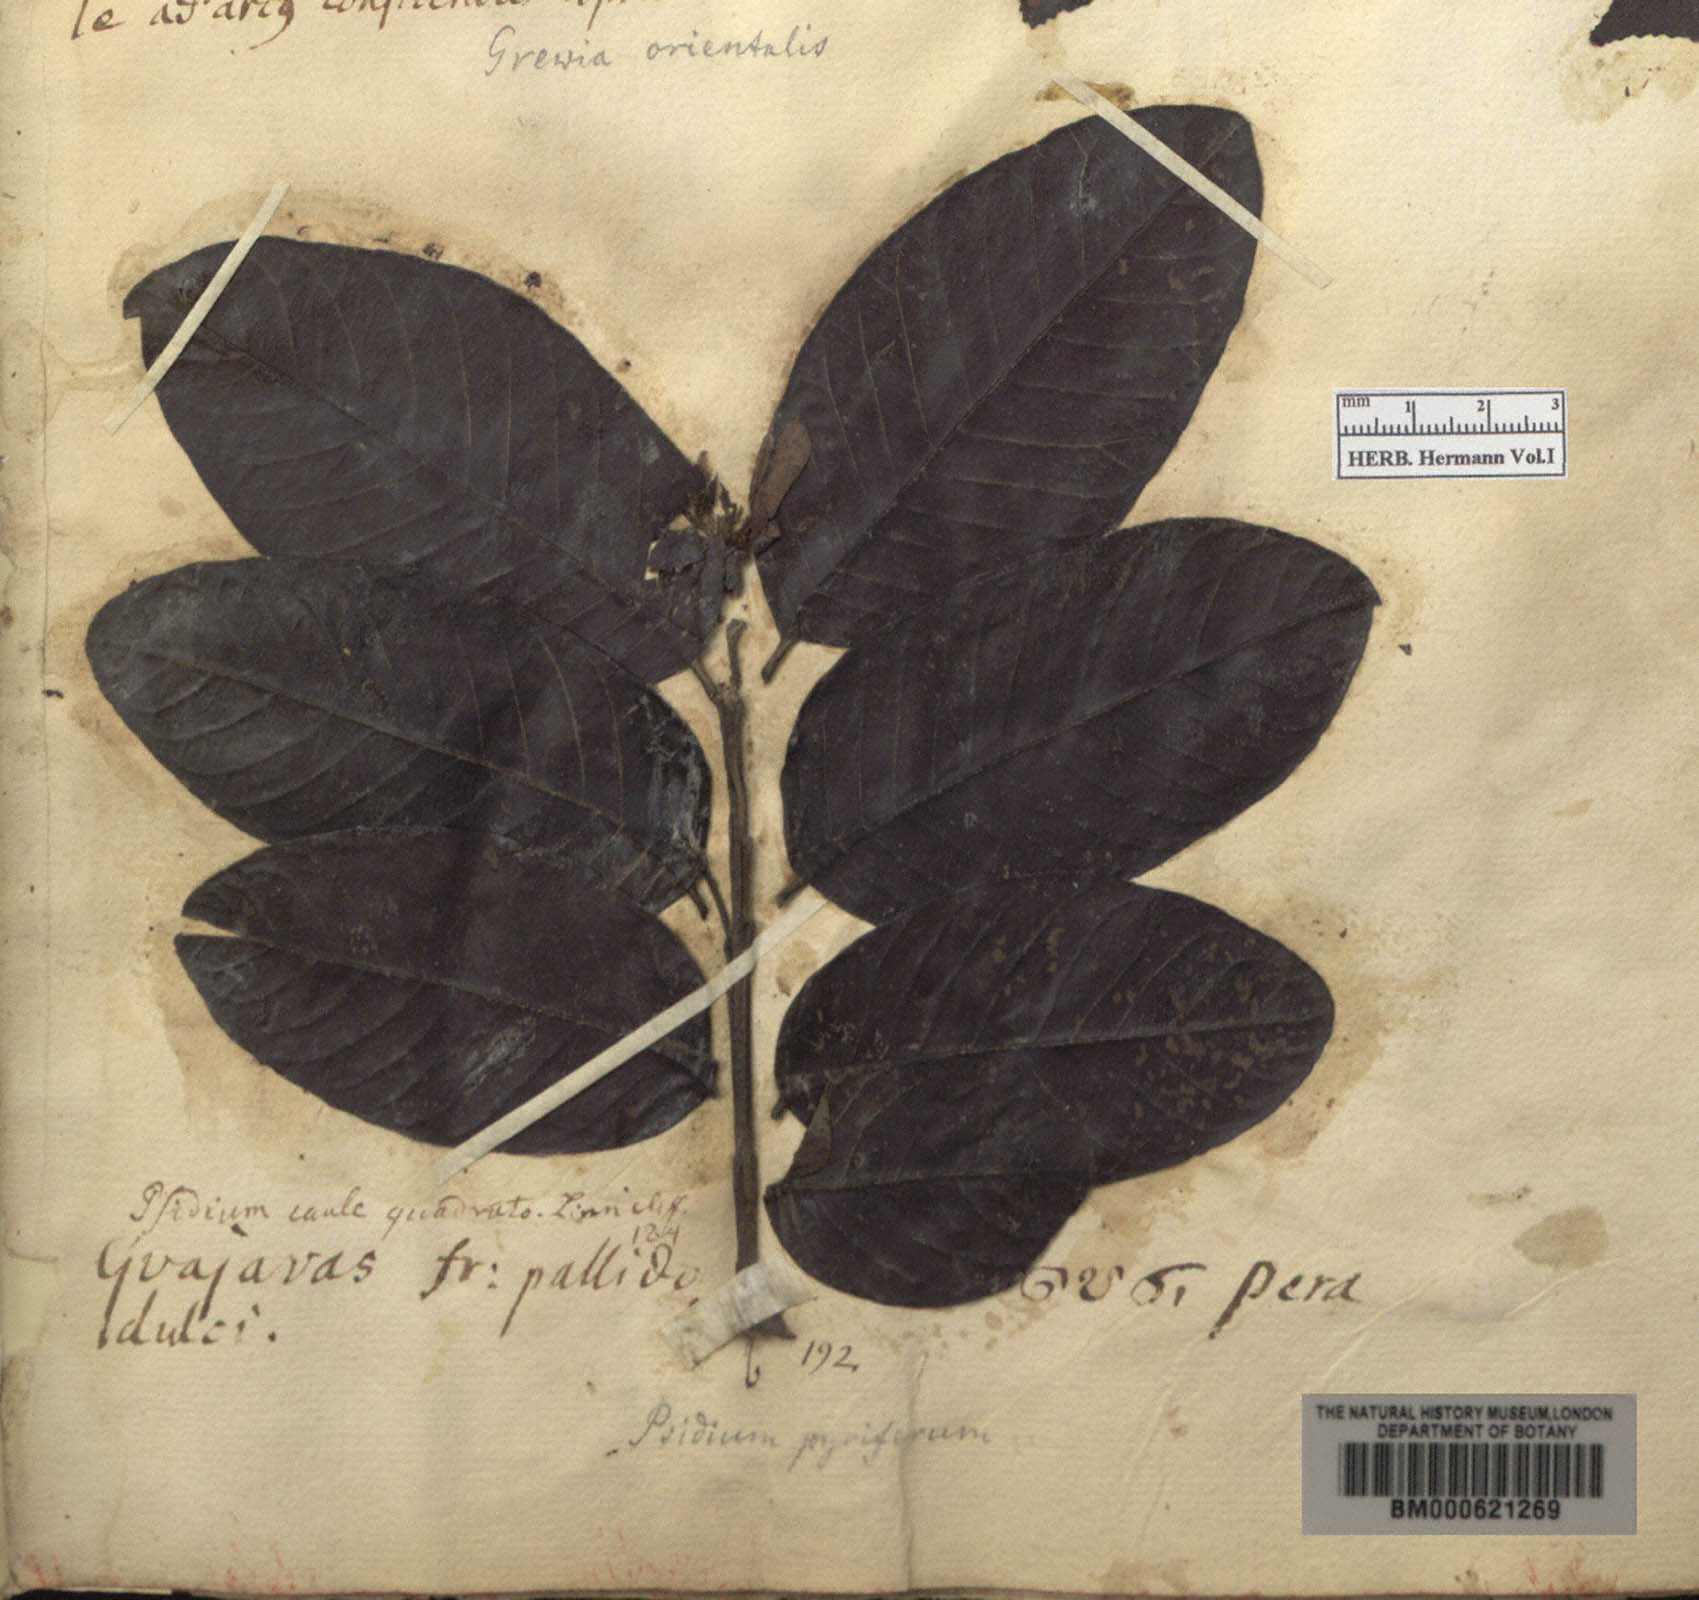 le ad arcq
Grewia orientalis
mm 1 2 3
HERB. Hermann Vol.I
Psidium caule quadrato. Linn cliff.
184
Guajavas fr: pallido
dulci.
pera
192
Psidium pyriferum
THE NATURAL HISTORY MUSEUM, LONDON
DEPARTMENT OF BOTANY
BM000621269